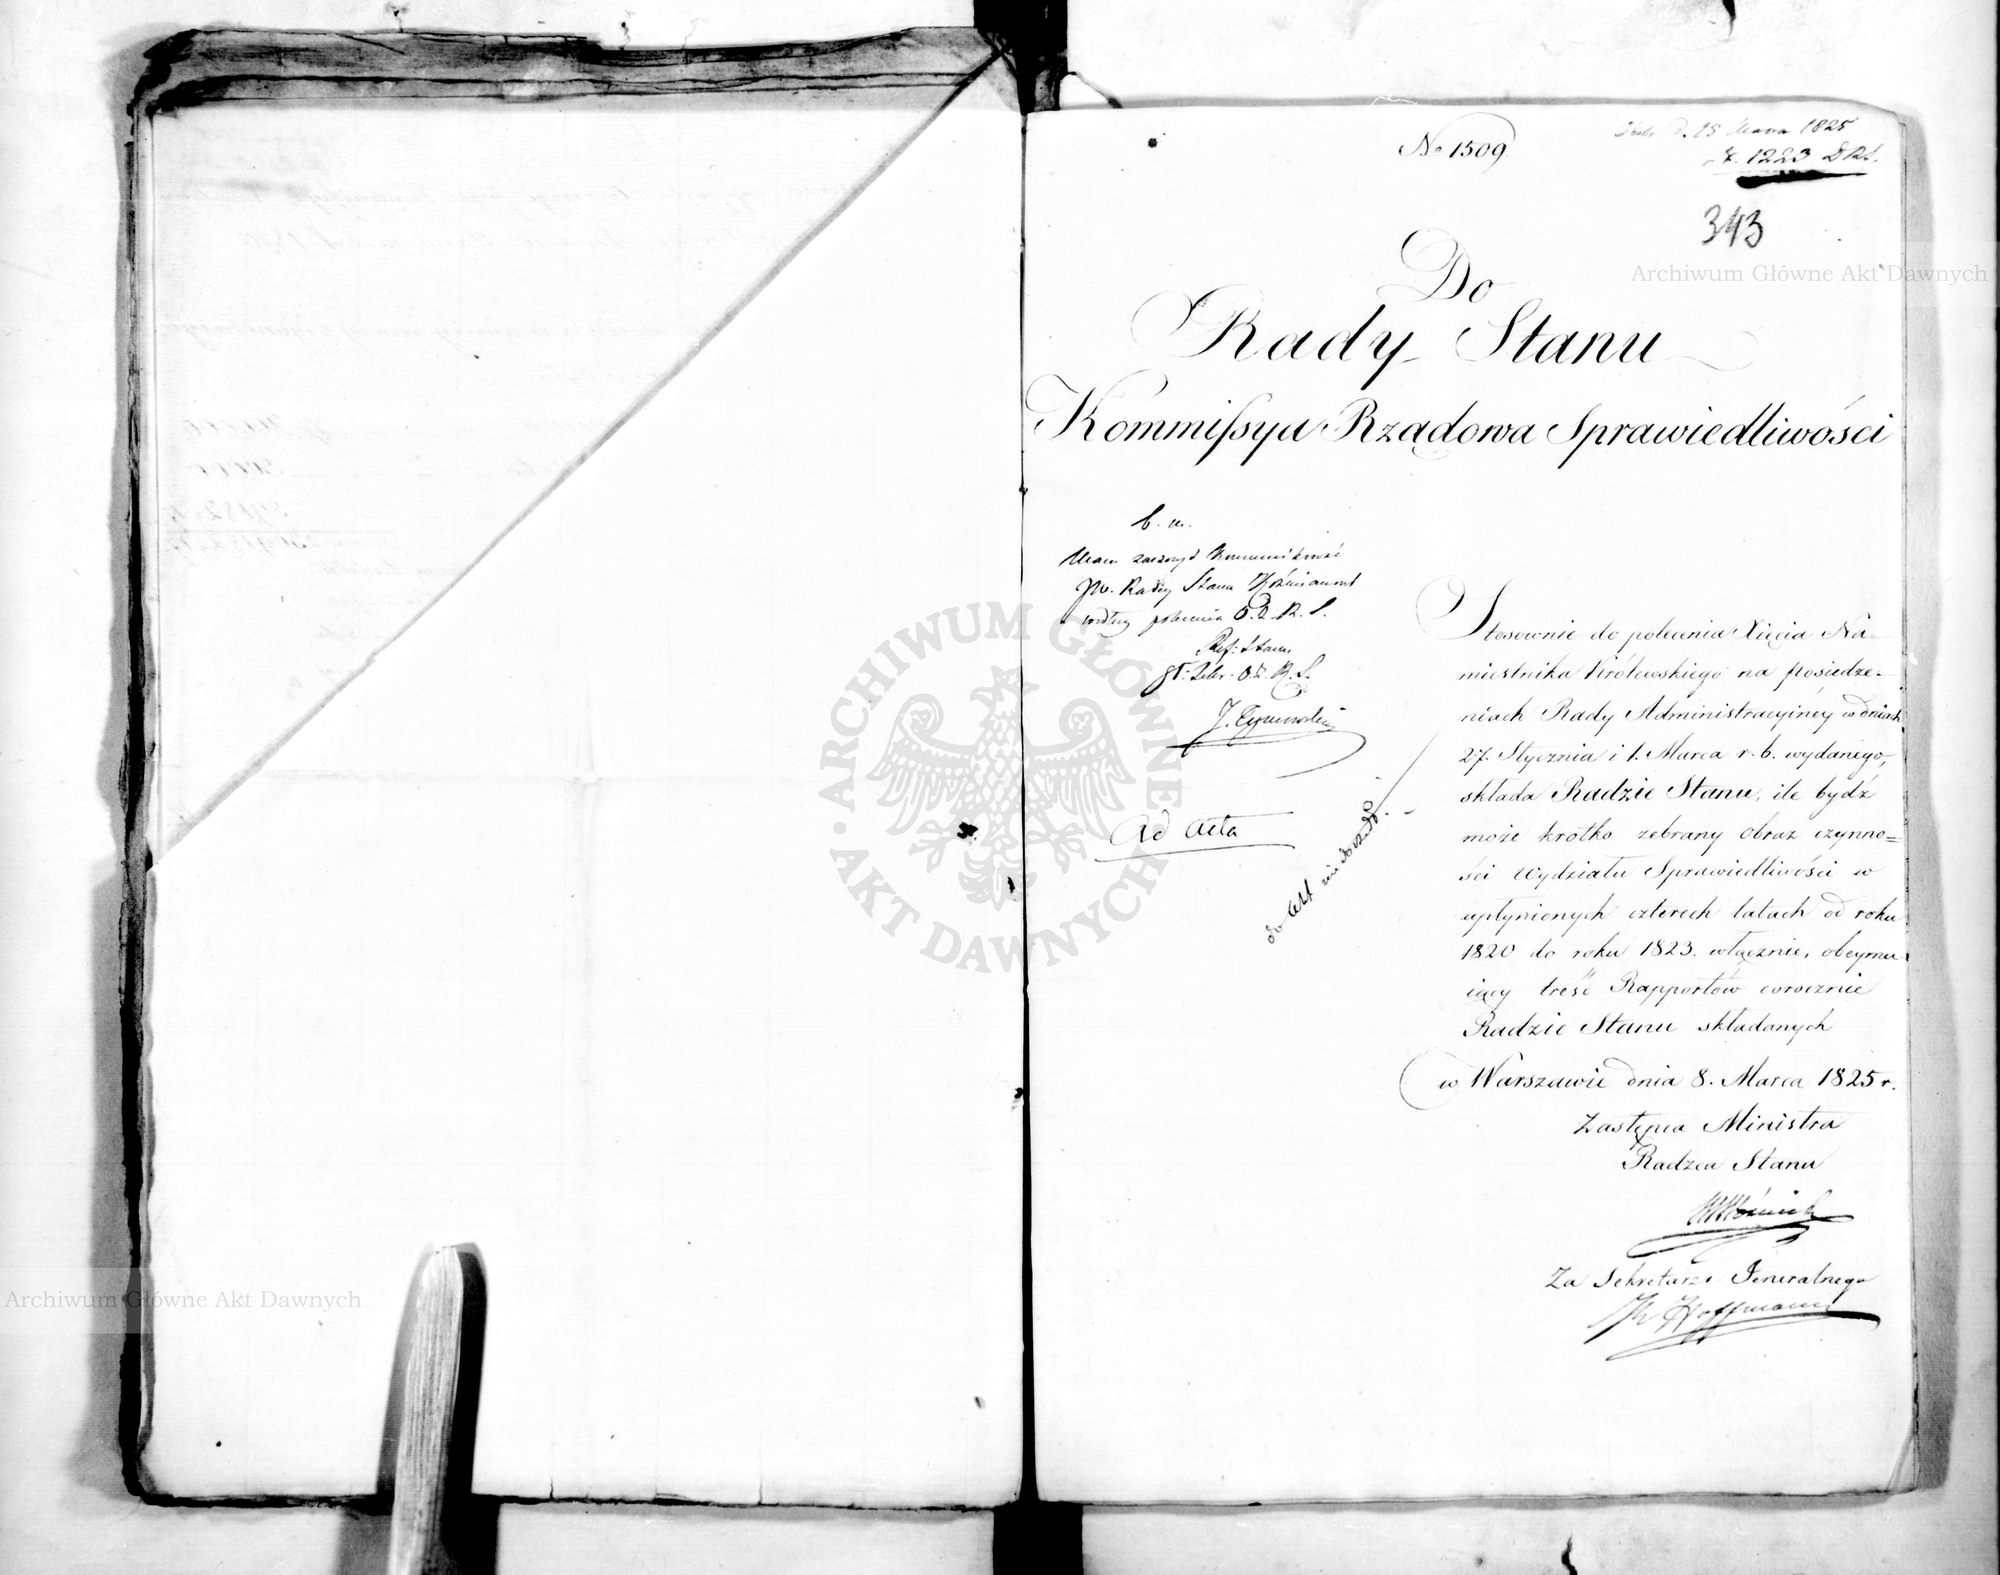 No 1509
d. 15 Marca 1825
N. 1223 DRS.
343
Do
Rady Stanu
Kommissya Rządowa Sprawiedliwości
b. m.
Mam zaszczyt kommunikować
JW. Radcy Stanu Koźmianowi
według polecenia O. Z. R. S.
Ref: Stanu
Ad Acta
do Akt nie doszedł.
Stosownie do polecenia Xięcia Na-
miestnika Królewskiego na posiedze-
niach Rady Administracyiney w dniach
27. Stycznia i 1. Marca r. b. wydanego,
składa Radzie Stanu, ile bydź
może krótko zebrany obraz czynno=
ści Wydziału Sprawiedliwości w
upłynionych czterech latach od roku
1820 do roku 1823. włącznie, obeymu
iący treść Rapportów corocznie
Radzie Stanu składanych
w Warszawie dnia 8. Marca 1825 r.
Zastępca Ministra
Radzca Stanu
M Woźnicki
Za Sekretarza Jeneralnego
Hoffmann
Archiwum Główne Akt Dawnych
ARCHIWUM GŁÓWNE
AKT DAWNYCH
Archiwum Główne Akt Dawnych